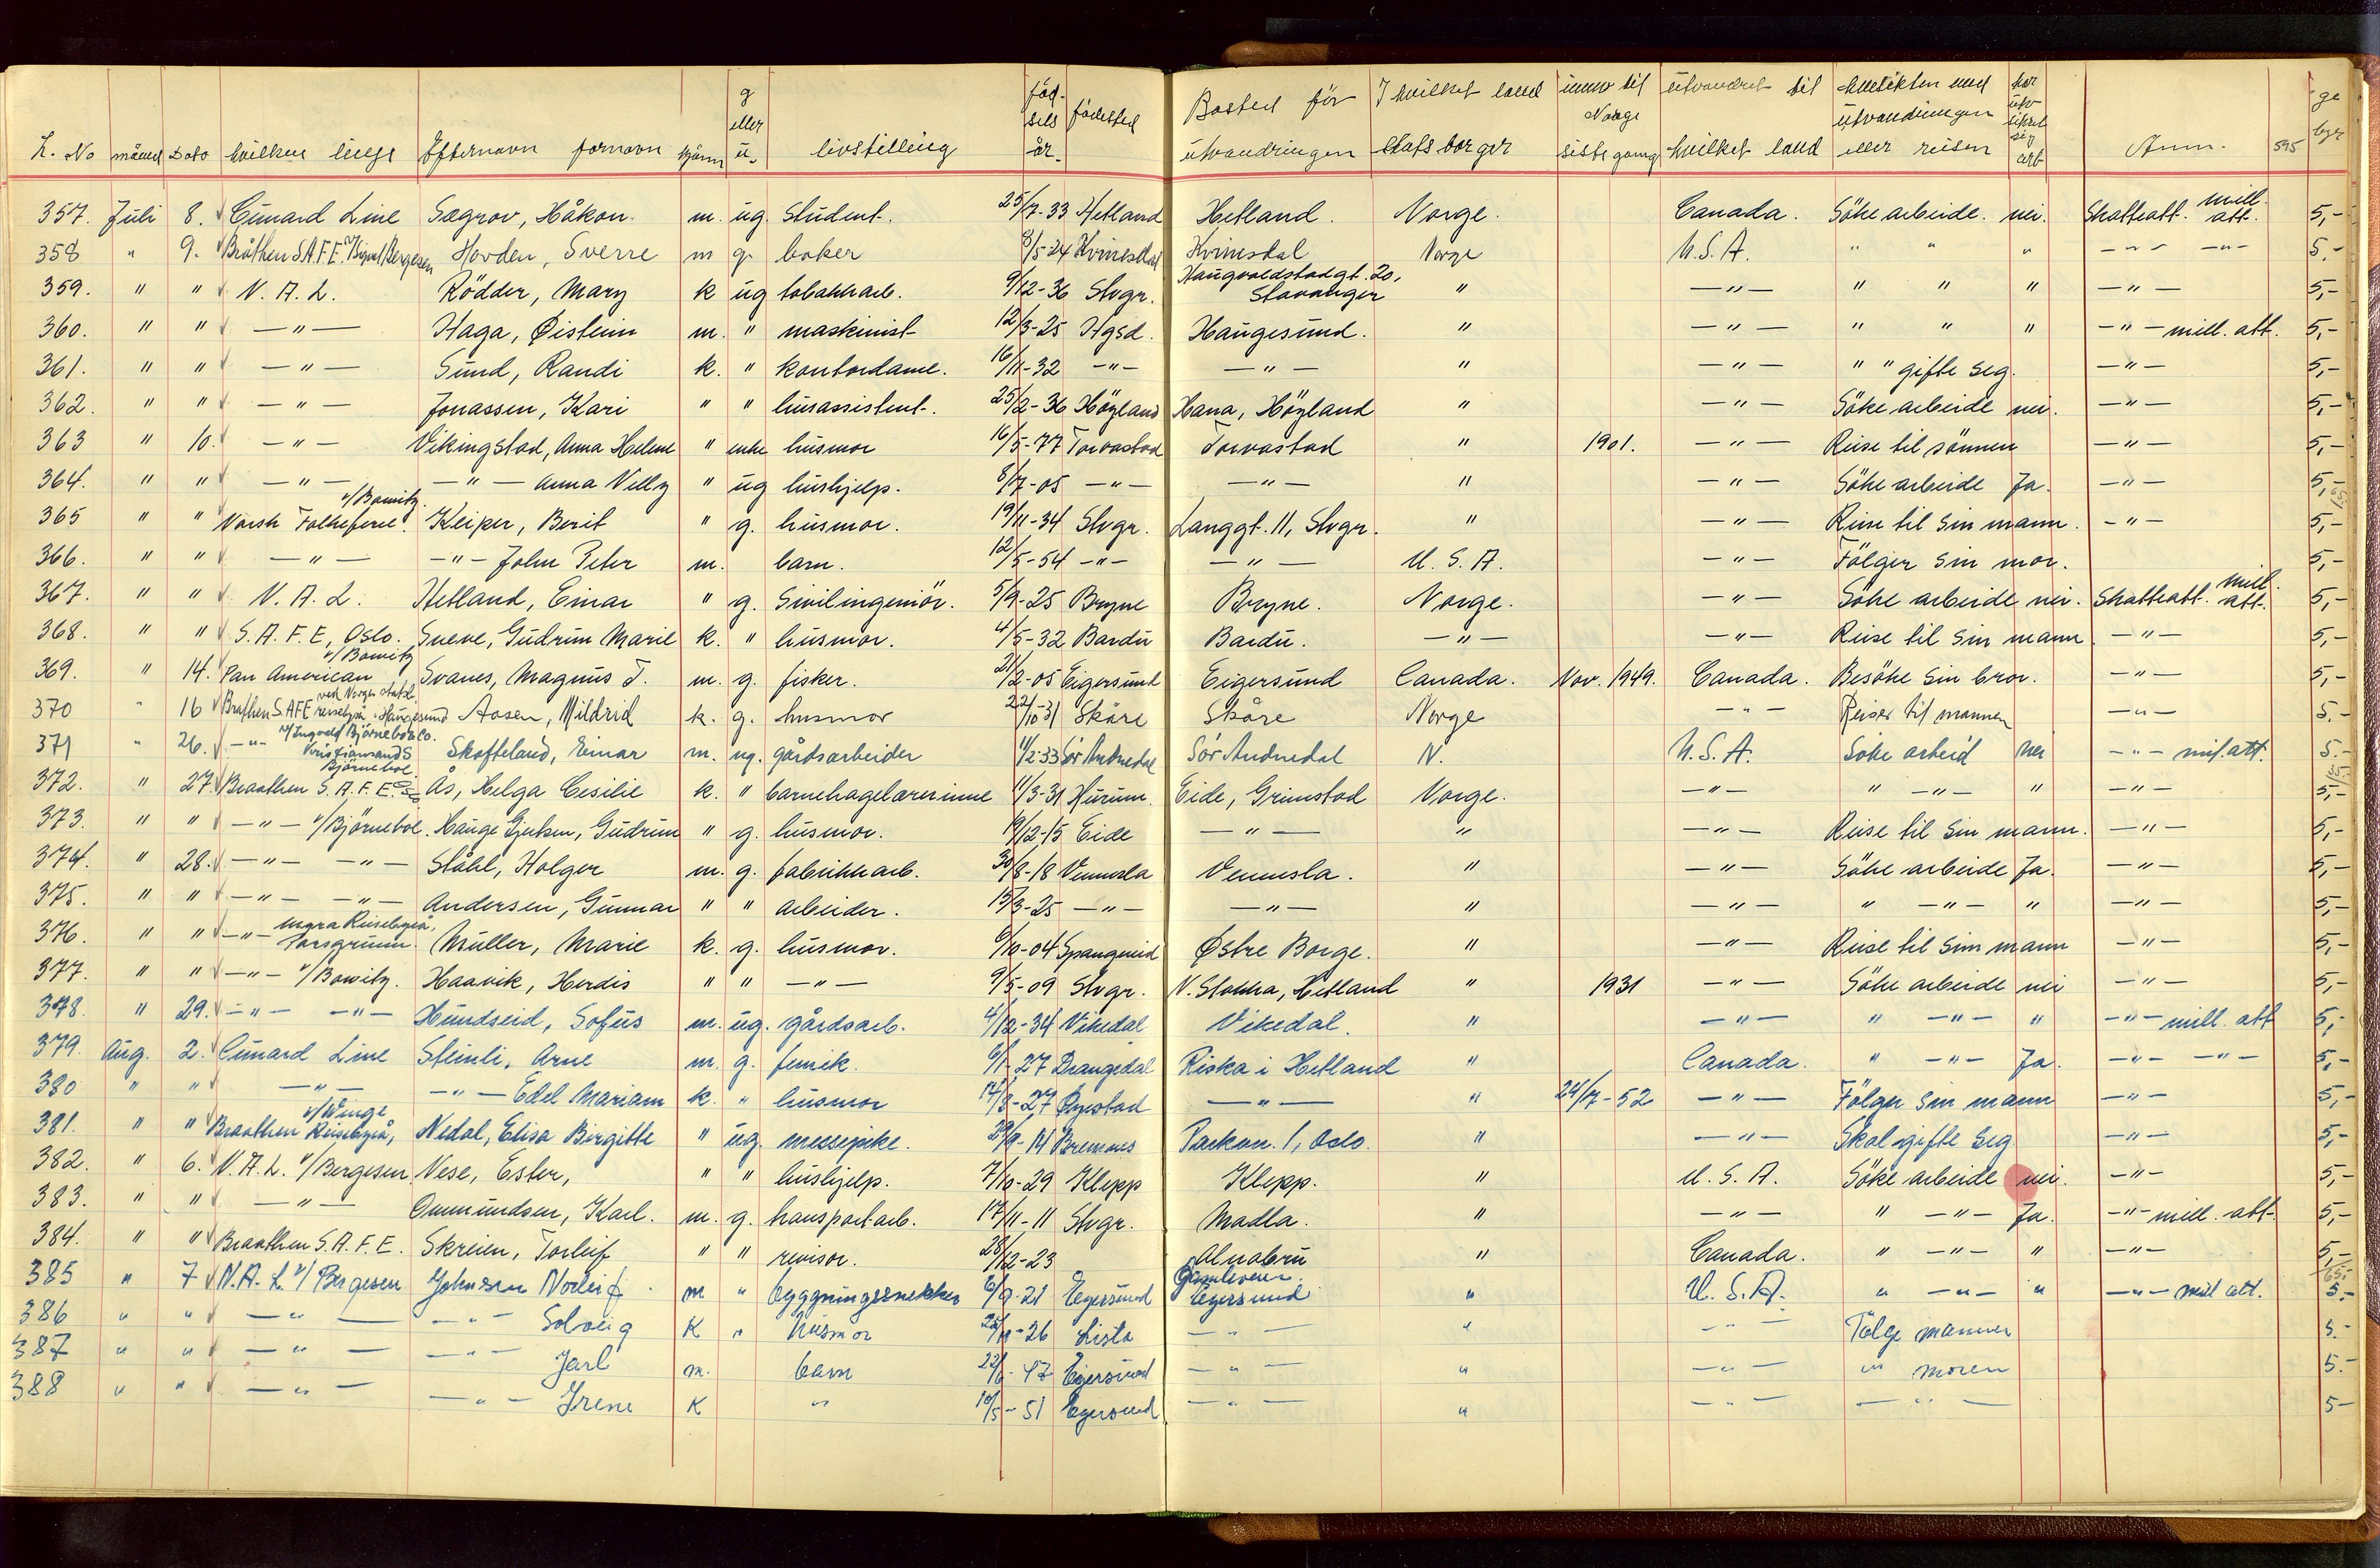 L. No måned Dato hvilken linje Efternavn fornavn kjönn g eller u. livstilling fødselsår fødested Bosted för utvandringen I hvilket land statsborger innv til Norge siste gang utvandret til hvilket land Hensikten med utvandringen eller reisen har utv sikret sig arb Anm. 595 ge byr
357. Juli 8. Cunard Line Sægrov, Håkon. m. ug. Student. 25/7-33 Hetland Hetland. Norge. Canada. Söke arbeide. nei. Skatteatt. mill. att. 5,-
358 " 9. Bråthen S.A.F.E. v/Sigval Bergesen Hovden, Sverre m g. baker 8/5-24 Kvinesdal Kvinesdal Norge U.S.A. " " " -"- -"- 5.-
359. " " N.A.L. Rödder, Mary k ug tobakkarb. 9/12-36 Stvgr. Haugvaldstadgt. 20, Stavanger " -"- " " " -"- 5,-
360. " " -"- Haga, Øistein m. " maskinist 12/3-25 Hgsd. Haugesund. " -"- " " " -"- mill. att. 5,-
361. " " -"- Sund, Randi k. " kontordame. 16/11-32 -"- -"- " -"- " " gifte seg. -"- 5,-
362. " " -"- Jonassen, Kari " " husassistent. 25/2-36 Höyland Hana, Höyland " -"- Söke arbeide nei. -"- 5,-
363 " 10. -"- Vikingstad, Anna Helene " enke husmor 16/5-77 Torvastad Torvastad " 1901. -"- Reise til sönnen -"- 5,-
364. " " -"- -"- Anna Velly " ug hushjelp. 8/7-05 -"- -"- " -"- Söke arbeide Ja. -"- 5,-
365 " " Norsk Folkeferie v/Bowitz. Keiper, Berit " g. husmor. 19/11-34 Stvgr. Langgt. 11, Stvgr. " -"- Reise til sin mann. -"- 5,-
366. " " -"- -"- John Peter m. barn. 12/5-54 -"- -"- U.S.A. -"- Fölger sin mor. 5,-
367. " " N.A.L. Hetland, Einar " g. Sivilingeniör. 5/9-25 Bryne Bryne. Norge. -"- Söke arbeide nei. Skatteatt. mill. att. 5,-
368. " " S.A.F.E, Oslo. Sneve, Gudrun Marie k. " husmor. 4/5-32 Bardu Bardu. -"- -"- Reise til sin mann -"- 5,-
369. " 14. Pan American v/Bowitz Svanes, Magnus T. m. g. fisker. 21/2-05 Eigersund Eigersund Canada. Nov. 1949. Canada. Besöke sin bror. -"- 5,-
370 " 16 Brathen S.AFE ved Norges statsb. reisebyrå Haugesund Aasen, Mildrid k. g. husmor 22/10-31 Skåre Skåre Norge -"- Reiser til mannen -"- 5.-
371 " 26. -"- v/Ingvald Björnebo & Co. Kristiansand S Skofteland, Einar m. ug. gårdsarbeider 11/2-33 Sör Audnedal Sör Audnedal N. U.S.A. Söke arbeid nei -"- mil. att. 5.-
372. " 27. Braathen S.A.F.E. Björneboe & Co Ås, Helga Cesilie k. " barnehagelærerinne 11/3-31 Hurum. Eide, Grimstad Norge. -"- " -"- " -"- 5,-
373. " " -"- v/Björneboe. Hauge Gjerksen, Gudrun " g. husmor. 19/12-15 Eide -"- " -"- Reise til sin mann. -"- 5,-
374. " 28. -"- -"- Ståhl, Holger m. g. fabrikkarb. 30/8-18 Vennesla Vennesla. " -"- Söke arbeide Ja. -"- 5,-
375. " " -"- -"- Andersen, Gunnar " " arbeider. 15/3-25 -"- -"- " -"- " -"- " -"- 5,-
376. " " -"- Reisebyrå, Porsgrunn. Müller, Marie k. g. husmor. 6/10-04 Spangereid Østre Borge. " -"- Reise til sin mann -"- 5,-
377. " " -"- v/Bowitz. Haavik, Herdis " " -"- 9/5-09 Stvgr. N. Stokka, Hetland " 1931 -"- Söke arbeide nei -"- 5,-
378. " 29. -"- -"- Hundseid, Sofus m. ug. gårdsarb. 4/12-34 Vikedal Vikedal. " -"- " -"- " -"- mill. att 5,-
379. Aug. 2. Cunard Line Steinli, Arne m. g. fenrik. 6/1-27 Drangedal Riska i Hetland " Canada. " -"- Ja. -"- -"- 5,-
380 " " -"- -"- Edel Mariam k. " husmor 14/8-27 Øyestad -"- " 24/7-52 -"- Fölger sin mann -"- 5,-
381. " " Braathen v/Winge Reisebyrå, Nedal, Elisa Birgitte " ug. messepike. 29/9-14 Bremnes Parkvn. 1, Oslo. " -"- Skal gifte seg -"- 5,-
382. " 6. N.A.L. v/Bergesen Nese, Ester, " " hushjelp. 7/10-29 Klepp Klepp. " U.S.A. Söke arbeide nei. -"- 5,-
383. " " -"- Ommundsen, Karl. m. g. transportarb. 17/11-11 Stvgr. Madla. " -"- " -"- Ja. -"- mill. att. 5,-
384. " " Braathen S.A.F.E. Skreien, Torleif " " revisor. 28/12-23 Alnabru " Canada. " -"- " -"- 5,-
385 " 7 N.A.L. v/Bergesen Johnsen Norleif m " byggningssnekker 6/9-21 Egersund Gamleveien. Egersund " U.S.A. " -"- " -"- mill att. 5.-
386 " " -"- -"- Solveig K " husmor 25/11-26 Lista -"- " -"- Følge mannen 5.-
387 " " -"- -"- Jarl m. barn 22/6-47 Egersund -"- " -"- " moren 5.-
388 " " -"- -"- Irene K " 10/5-51 Egersund -"- " -"- -"- 5-